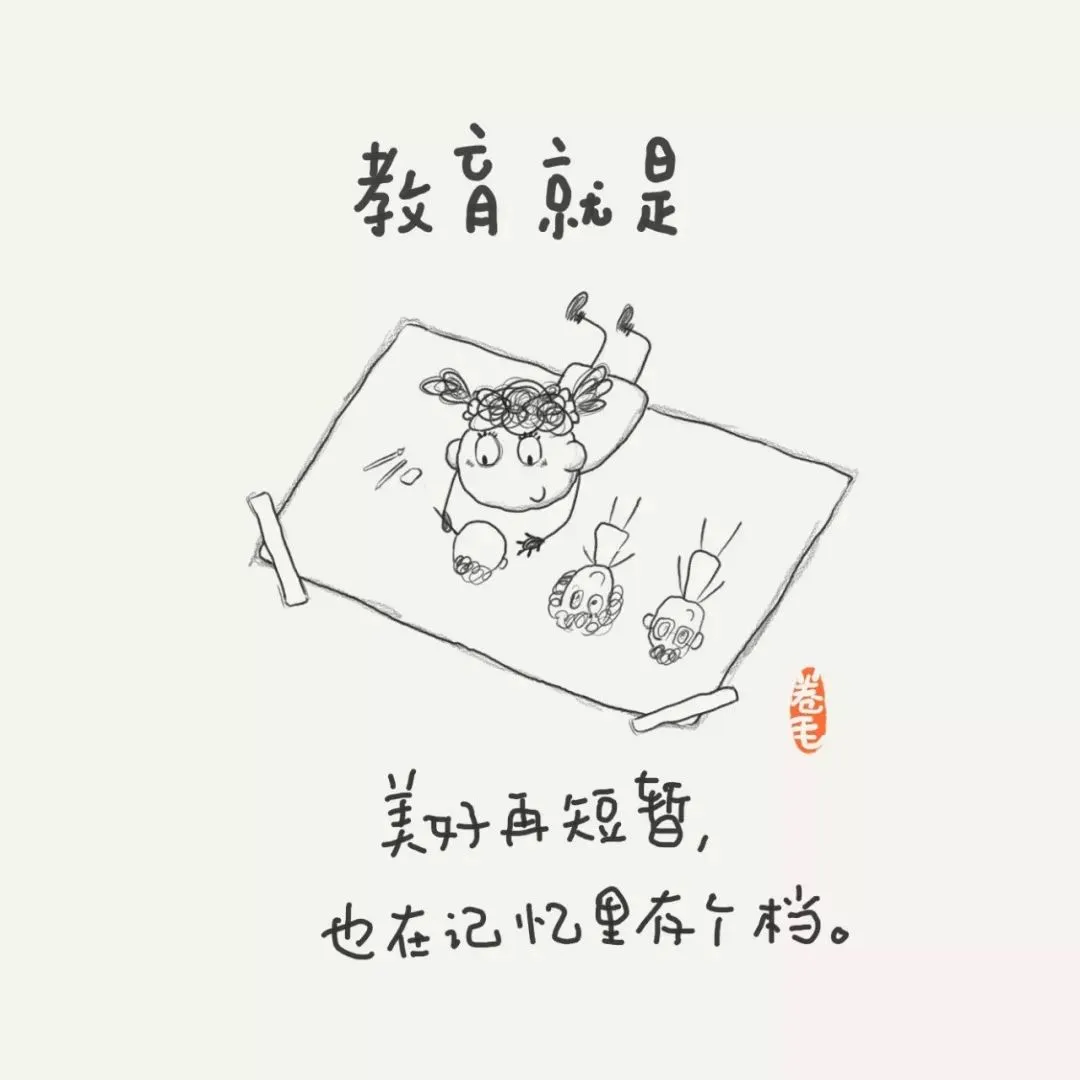 教育就是
卷毛
美好再短暂,
也在记忆里存个档。